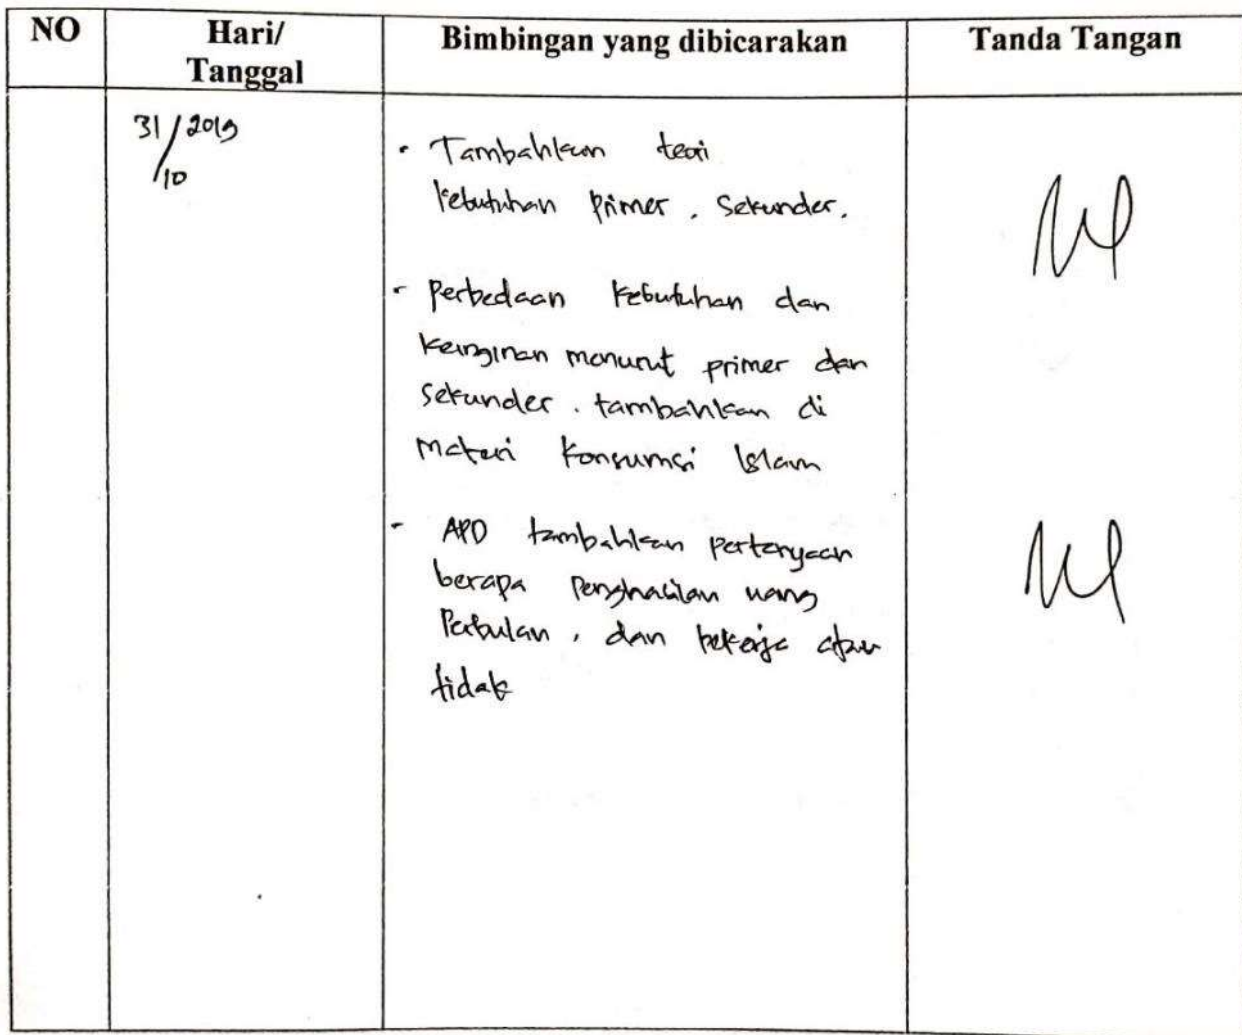 NO
Hari/
Tanggal
Bimbingan yang dibicarakan
Tanda Tangan
31/10 2019
- Tambahkan teori
kebutuhan primer, sekunder.
- perbedaan kebutuhan dan
keinginan menurut primer dan
sekunder. tambahkan di
materi konsumsi Islam
- APD tambahkan pertanyaan
berapa penghasilan uang
Perbulan, dan bekerja atau
tidak